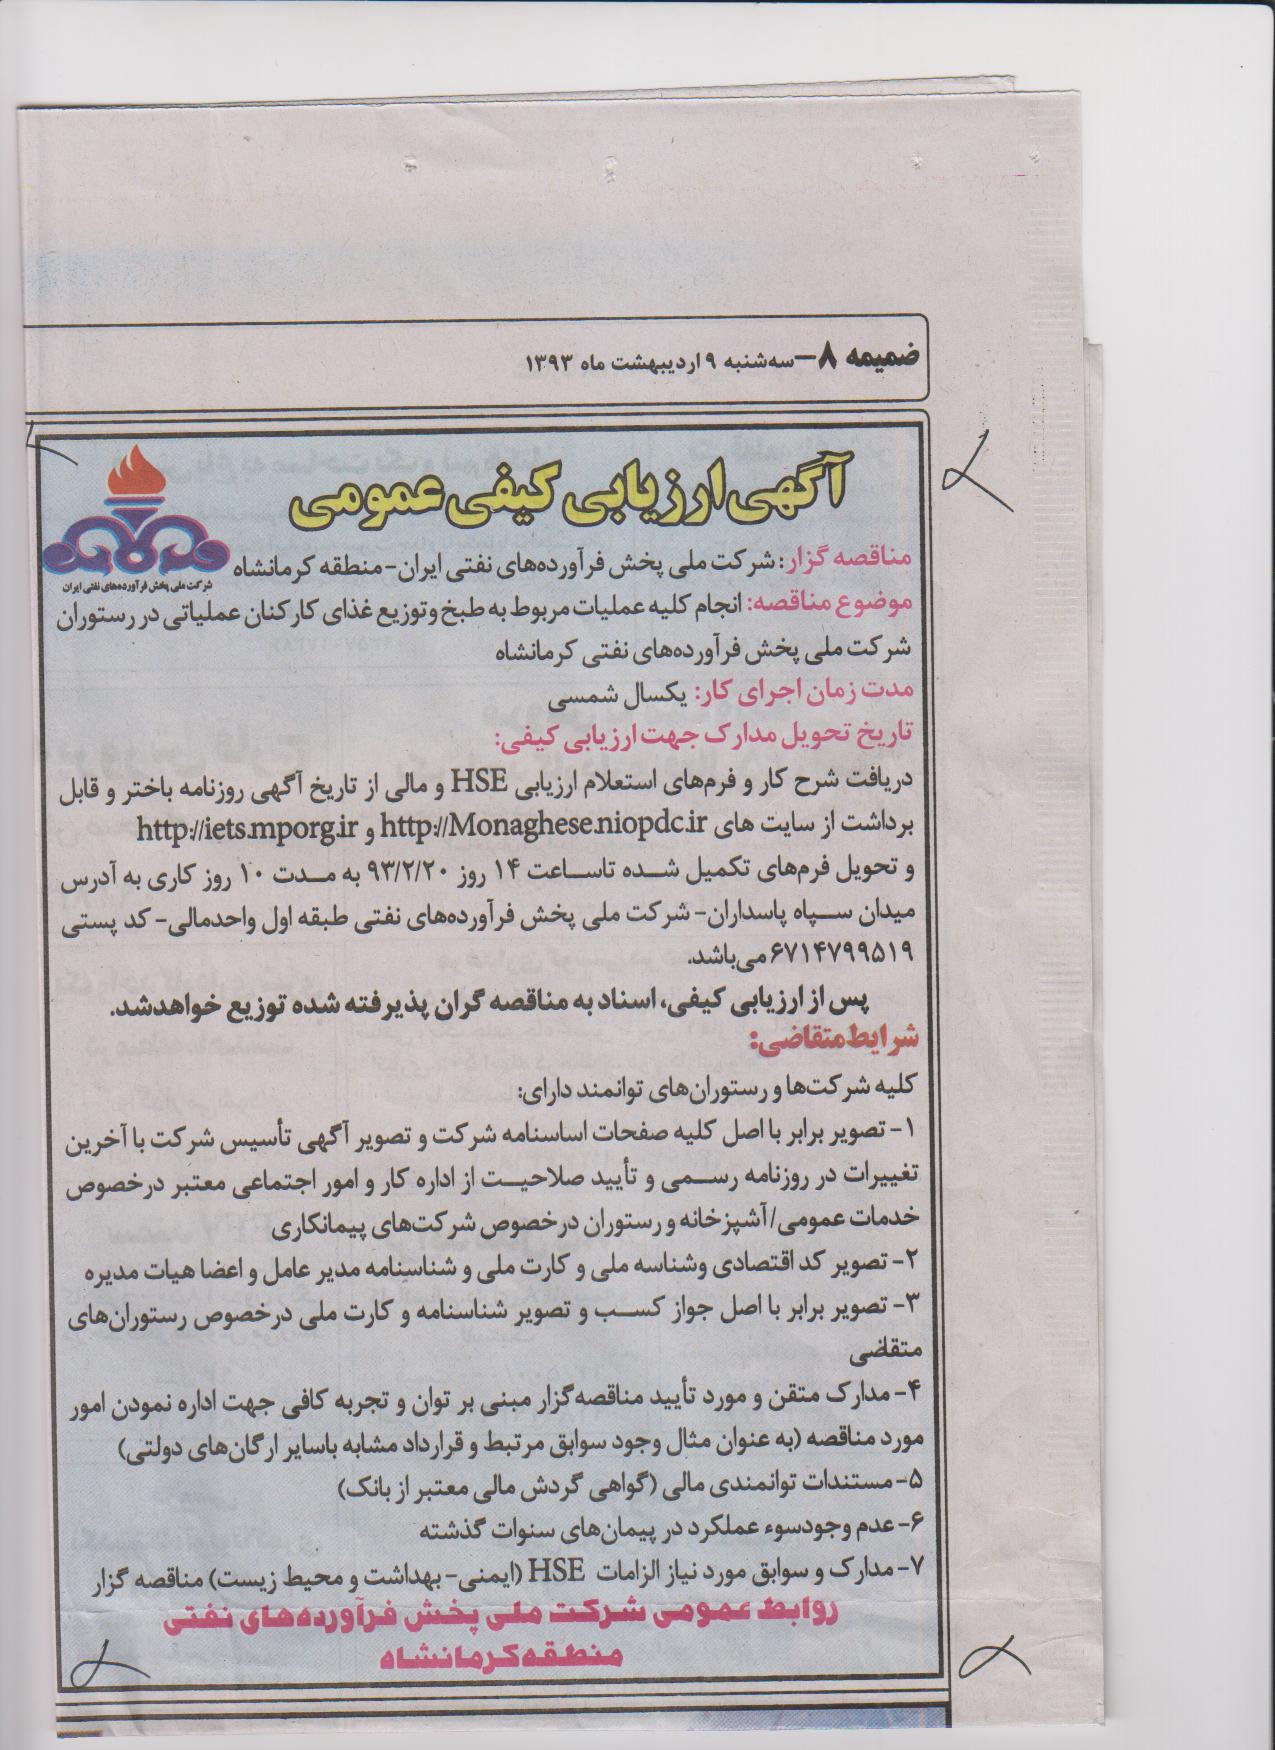 ضمیمه ۸–سه‌شنبه ۹ اردیبهشت ماه ۱۳۹۳
آگهی ارزیابی کیفی عمومی
شرکت ملی پخش فرآورده‌های نفتی ایران
مناقصه گزار: شرکت ملی پخش فرآورده‌های نفتی ایران-منطقه کرمانشاه
موضوع مناقصه: انجام کلیه عملیات مربوط به طبخ وتوزیع غذای کارکنان عملیاتی در رستوران
شرکت ملی پخش فرآورده‌های نفتی کرمانشاه
مدت زمان اجرای کار: یکسال شمسی
تاریخ تحویل مدارک جهت ارزیابی کیفی:
دریافت شرح کار و فرم‌های استعلام ارزیابی HSE و مالی از تاریخ آگهی روزنامه باختر و قابل
برداشت از سایت های http://Monaghese.niopdc.ir و http://iets.mporg.ir
و تحویل فرم‌های تکمیل شده تاساعت ۱۴ روز ۹۳/۲/۲۰ به مدت ۱۰ روز کاری به آدرس
میدان سپاه پاسداران- شرکت ملی پخش فرآورده‌های نفتی طبقه اول واحدمالی- کد پستی
۶۷۱۴۷۹۹۵۱۹ می‌باشد.
پس از ارزیابی کیفی، اسناد به مناقصه گران پذیرفته شده توزیع خواهدشد.
شرایط متقاضی:
کلیه شرکت‌ها و رستوران‌های توانمند دارای:
۱- تصویر برابر با اصل کلیه صفحات اساسنامه شرکت و تصویر آگهی تأسیس شرکت با آخرین
تغییرات در روزنامه رسمی و تأیید صلاحیت از اداره کار و امور اجتماعی معتبر درخصوص
خدمات عمومی/آشپزخانه و رستوران درخصوص شرکت‌های پیمانکاری
۲- تصویر کد اقتصادی وشناسه ملی و کارت ملی و شناسنامه مدیر عامل و اعضا هیات مدیره
۳- تصویر برابر با اصل جواز کسب و تصویر شناسنامه و کارت ملی درخصوص رستوران‌های
متقاضی
۴- مدارک متقن و مورد تأیید مناقصه‌گزار مبنی بر توان و تجربه کافی جهت اداره نمودن امور
مورد مناقصه (به عنوان مثال وجود سوابق مرتبط و قرارداد مشابه باسایر ارگان‌های دولتی)
۵- مستندات توانمندی مالی (گواهی گردش مالی معتبر از بانک)
۶- عدم وجودسوء عملکرد در پیمان‌های سنوات گذشته
۷- مدارک و سوابق مورد نیاز الزامات HSE (ایمنی- بهداشت و محیط زیست) مناقصه گزار
روابط عمومی شرکت ملی پخش فرآورده‌های نفتی
منطقه کرمانشاه